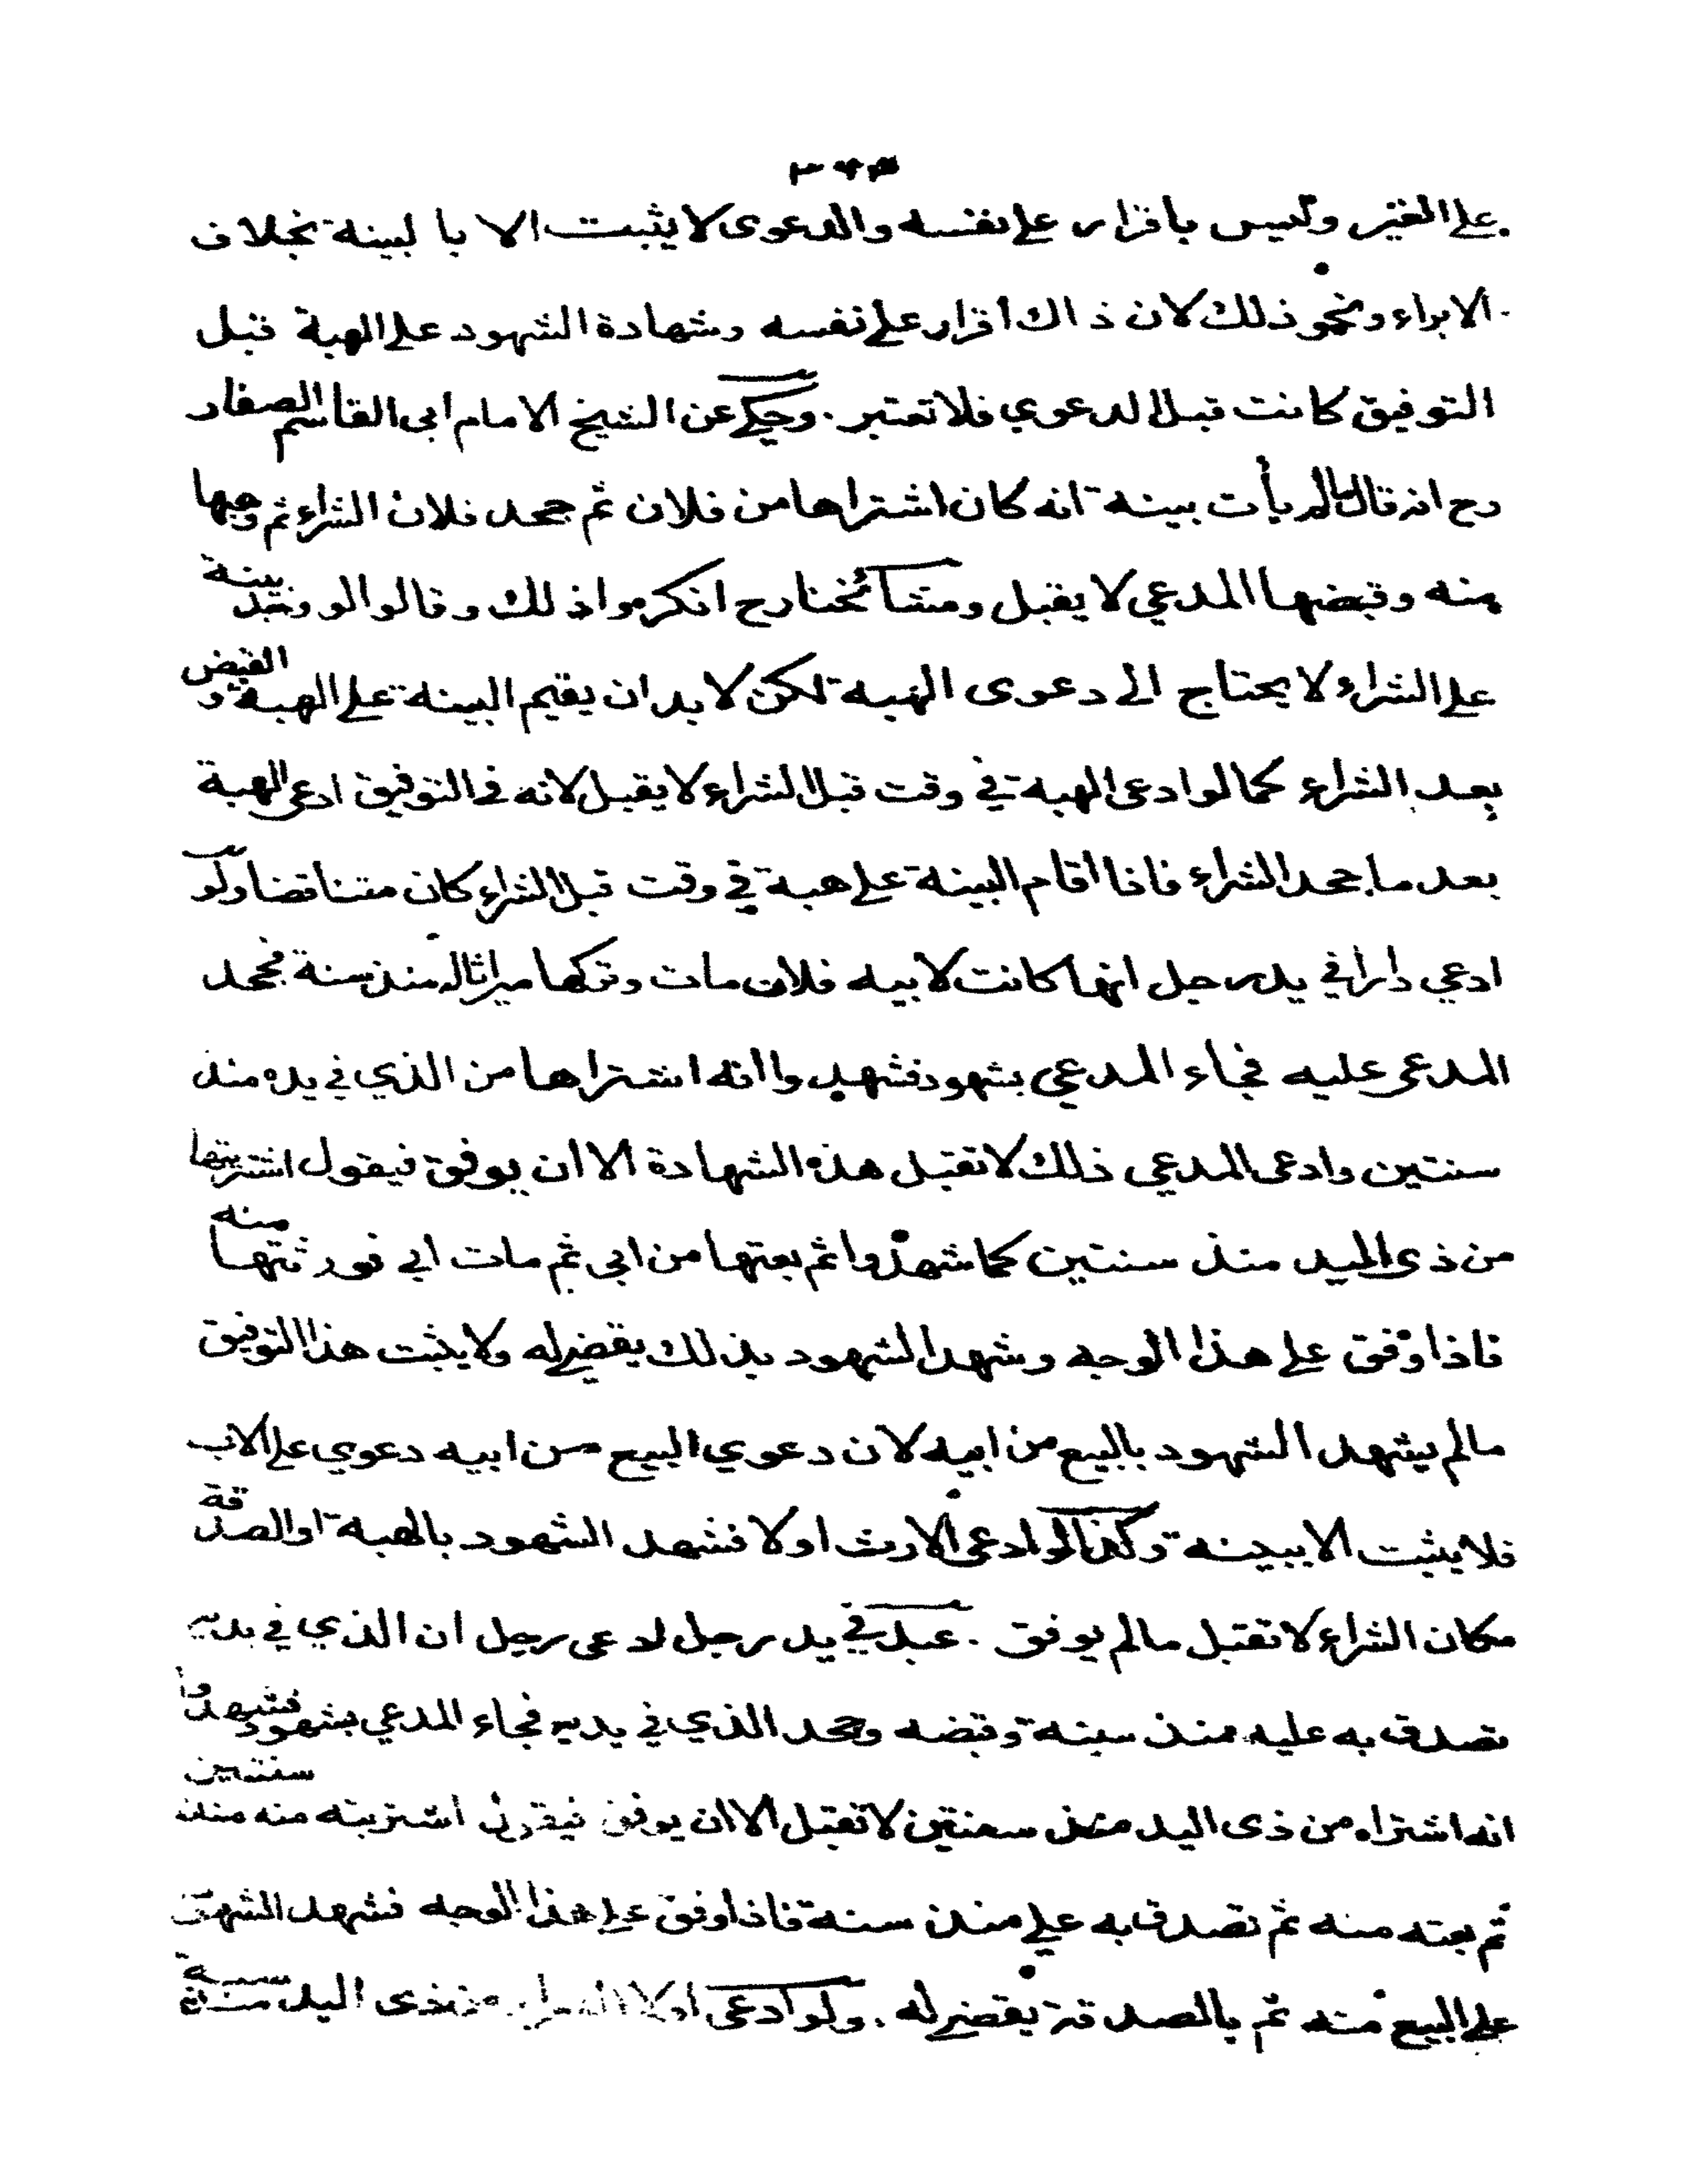 على الغير وليس باقرار على نفسه والدعوى لا يثبت الا با لبينة بخلاف
الابراء ونحو ذلك لان ذاك اقرار على نفسه وشهادة الشهود على الهبة قبل
التوفيق كانت قبل الدعوي فلا تعتبر. وحكي عن الشيخ الامام ابى القاسم الصفار
رح انه قال مالم يأت ببينة انه كان اشتراها من فلان ثم جحد فلان الشراء ثم وهبها
منه وقبضها المدعي لا يقبل ومشائخنا رح انكروا ذلك وقالوا لو وجد بينة
على الشراء لا يحتاج الى دعوى الهبة لكن لا بد ان يقيم البينة على الهبة والقبض
بعد الشراء كما لو ادعى الهبة في وقت قبل الشراء لا يقبل لانه في التوفيق ادعى الهبة
بعد ما جحد الشراء فاذا اقام البينة على هبة في وقت قبل الشراء كان متناقضا ولو
ادعي دارا في يد رجل انها كانت لابيه فلان مات وتركها ميراثا له منذ سنة فجحد
المدعى عليه فجاء المدعي بشهود فشهدوا انه اشتراها من الذي في يده منذ
سنتين وادعى المدعي ذلك لا تقبل هذه الشهادة الا ان يوفق فيقول اشتريتها
من ذى اليد منذ سنتين كما شهدوا ثم بعتها من ابى ثم مات ابي فورثتها منه
فاذا وفق على هذا الوجه وشهد الشهود بذلك يقضى له ولا يثبت هذا التوفيق
مالم يشهد الشهود بالبيع من ابيه لان دعوي البيع من ابيه دعوي على الاب
فلا يثبت الا ببينة وكذا لو ادعى الارث اولا فشهد الشهود بالهبة او الصدقة
مكان الشراء لا تقبل مالم يوفق. عبد في يد رجل ادعى رجل ان الذي في يديه
تصدق به عليه منذ سنة وقبضه وجحد الذي في يديه فجاء المدعي بشهود فشهدوا
انه اشتراه من ذى اليد منذ سنتين لا تقبل الا ان يوفق فيقول اشتريته منه منذ سنتين
ثم بعته منه ثم تصدق به علي منذ سنة فاذا وفق على هذا الوجه فشهد الشهود
على البيع منه ثم بالصدقة يقضى له. ولو ادعى اولا الشراء من ذى اليد منذ سنة